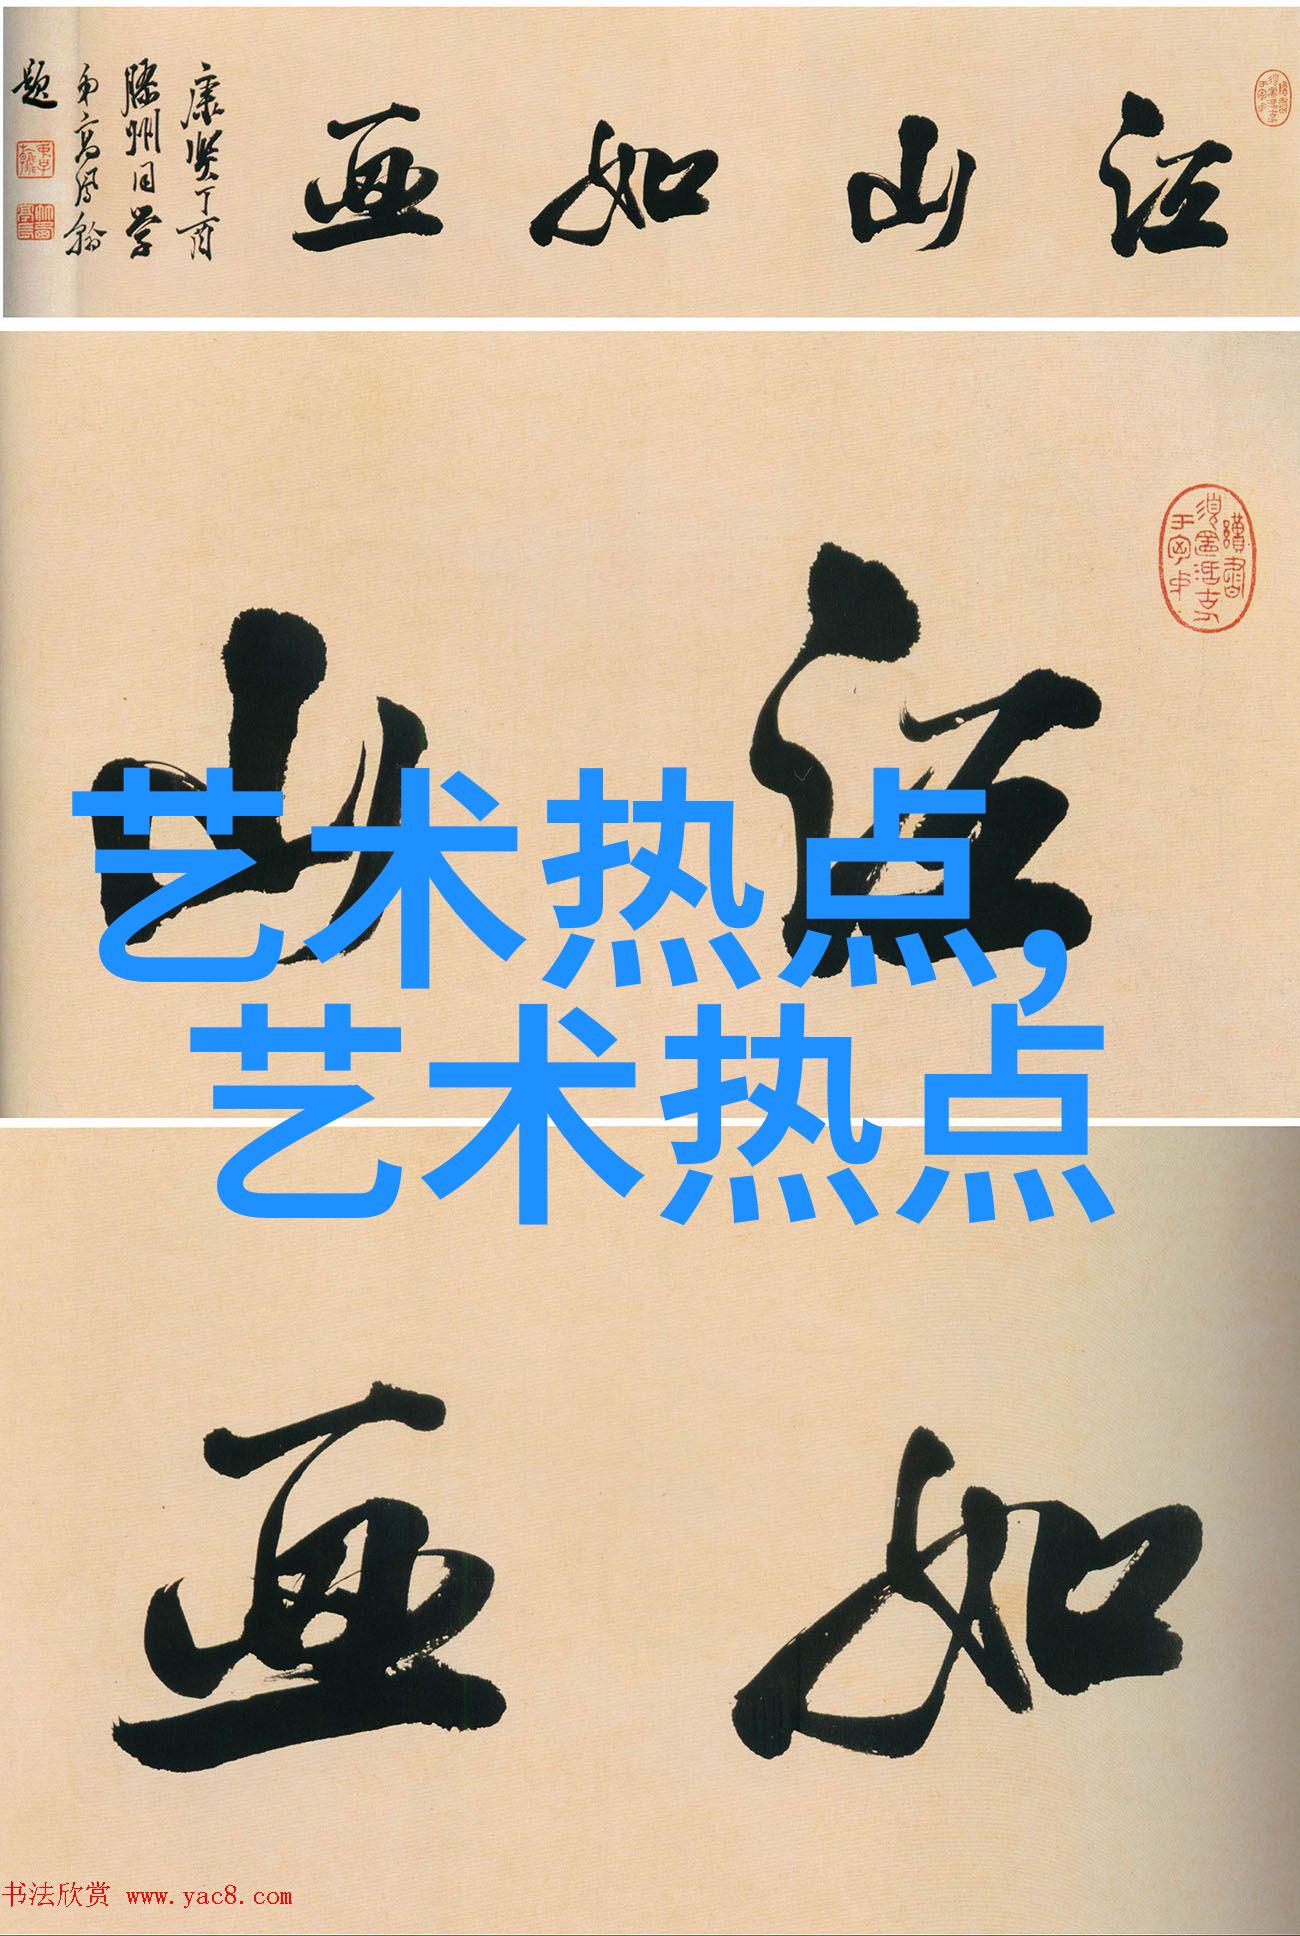 江山如画
康熙丁酉
膠州同学
弟高鳳翰
题
江山
艺术热点,
艺术热点
如画
书法欣赏 www.yac8.com